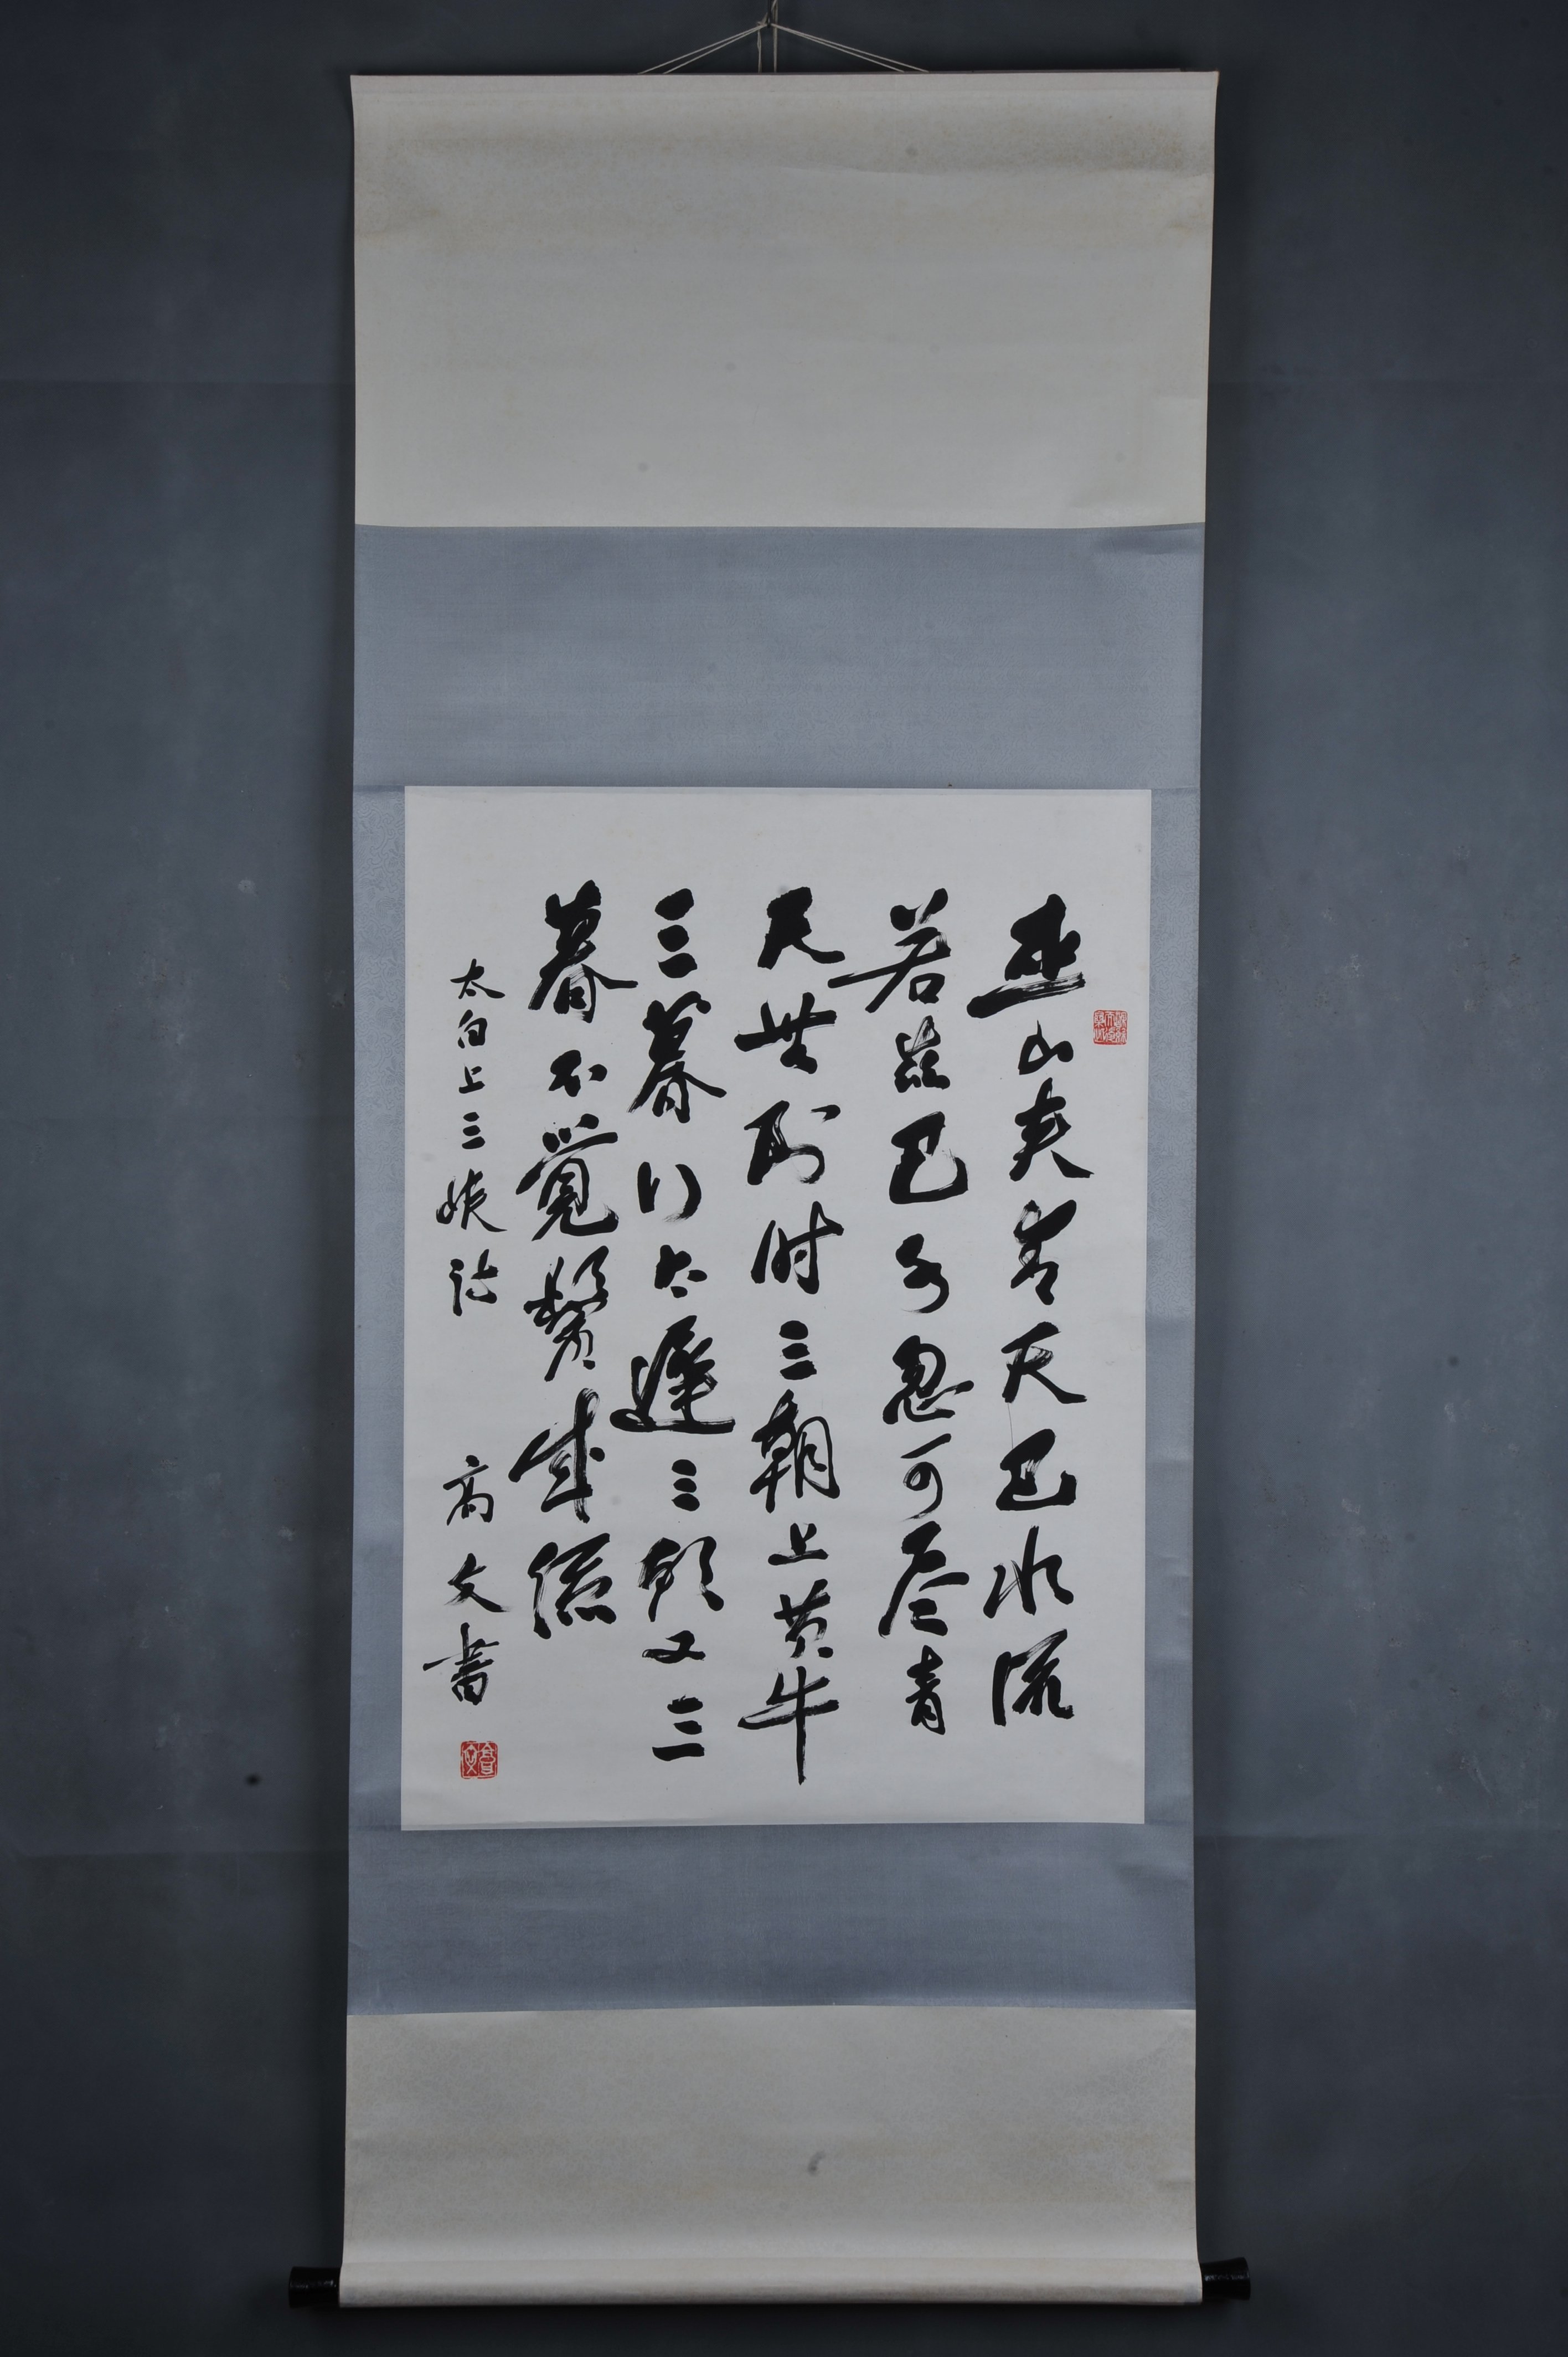 巫山夹青天巴水流
若兹巴水忽可尽青
天無到时三朝上黄牛
三暮行太遲三朝又三
暮不覺鬢成絲
太白上三峽诗 高文書
高文